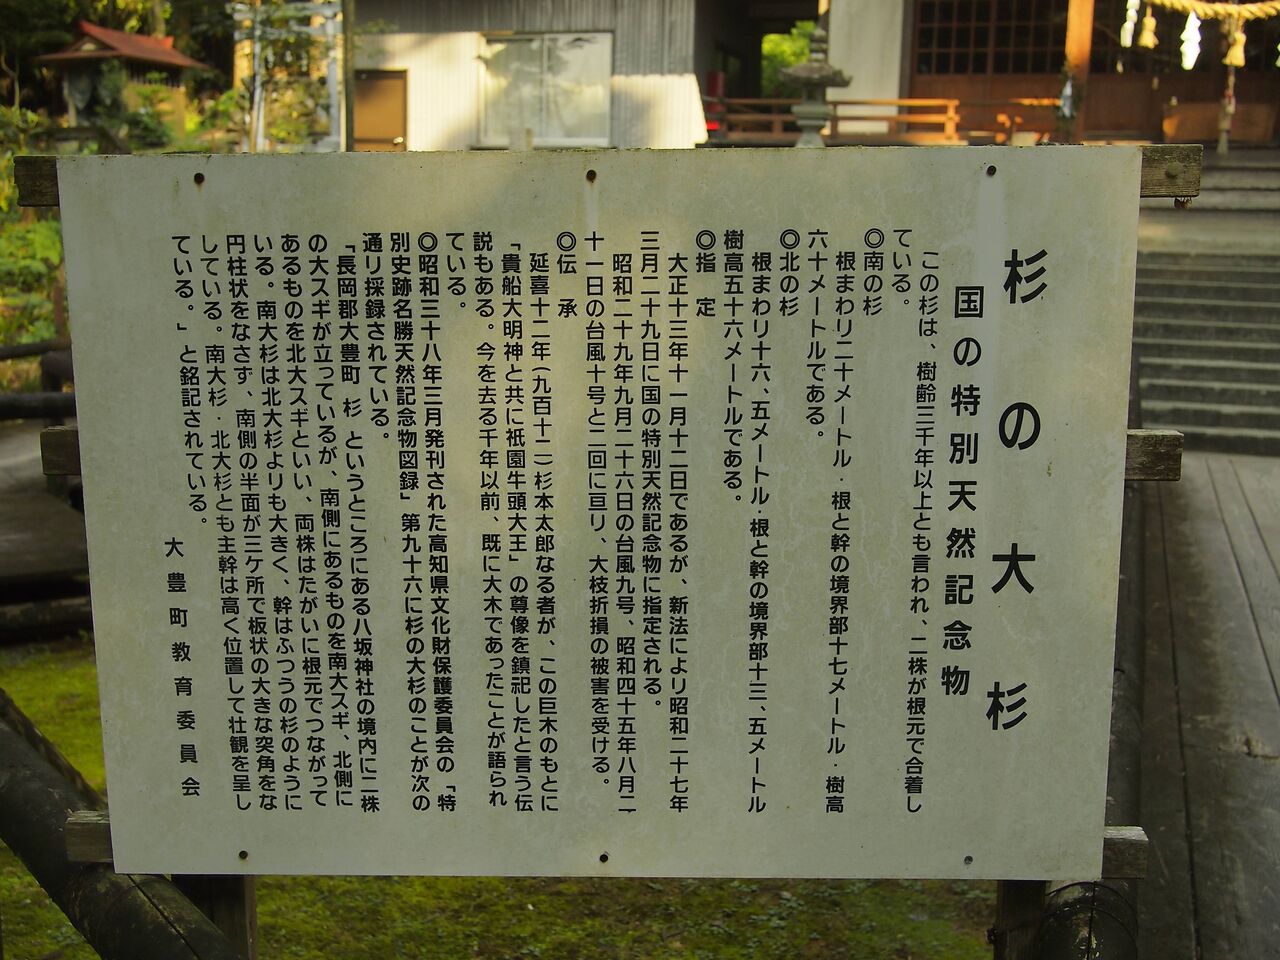 杉の大杉
国の特別天然記念物
この杉は、樹齢三千年以上とも言われ、二株が根元で合着し
ている。
◎南の杉
根まわり二十メートル・根と幹の境界部十七メートル・樹高
六十メートルである。
◎北の杉
根まわり十六、五メートル・根と幹の境界部十三、五メートル
樹高五十六メートルである。
◎指定
大正十三年十一月十二日であるが、新法により昭和二十七年
三月二十九日に国の特別天然記念物に指定される。
昭和二十九年九月二十六日の台風九号、昭和四十五年八月二
十一日の台風十号と二回に亘り、大枝折損の被害を受ける。
◎伝承
延喜十二年(九百十二)杉本太郎なる者が、この巨木のもとに
「貴船大明神と共に祇園牛頭大王」の尊像を鎮祀したと言う伝
説もある。今を去る千年以前、既に大木であったことが語られ
ている。
◎昭和三十八年三月発刊された高知県文化財保護委員会の「特
別史跡名勝天然記念物図録」第九十六に杉の大杉のことが次の
通り採録されている。
「長岡郡大豊町 杉 というところにある八坂神社の境内に二株
の大スギが立っているが、南側にあるものを南大スギ、北側に
あるものを北大スギといい、両株はたがいに根元でつながって
いる。南大杉は北大杉よりも大きく、幹はふつうの杉のように
円柱状をなさず、南側の半面が三ケ所で板状の大きな突角をな
している。南大杉・北大杉とも主幹は高く位置して壮観を呈し
ている。」と銘記されている。
大豊町教育委員会